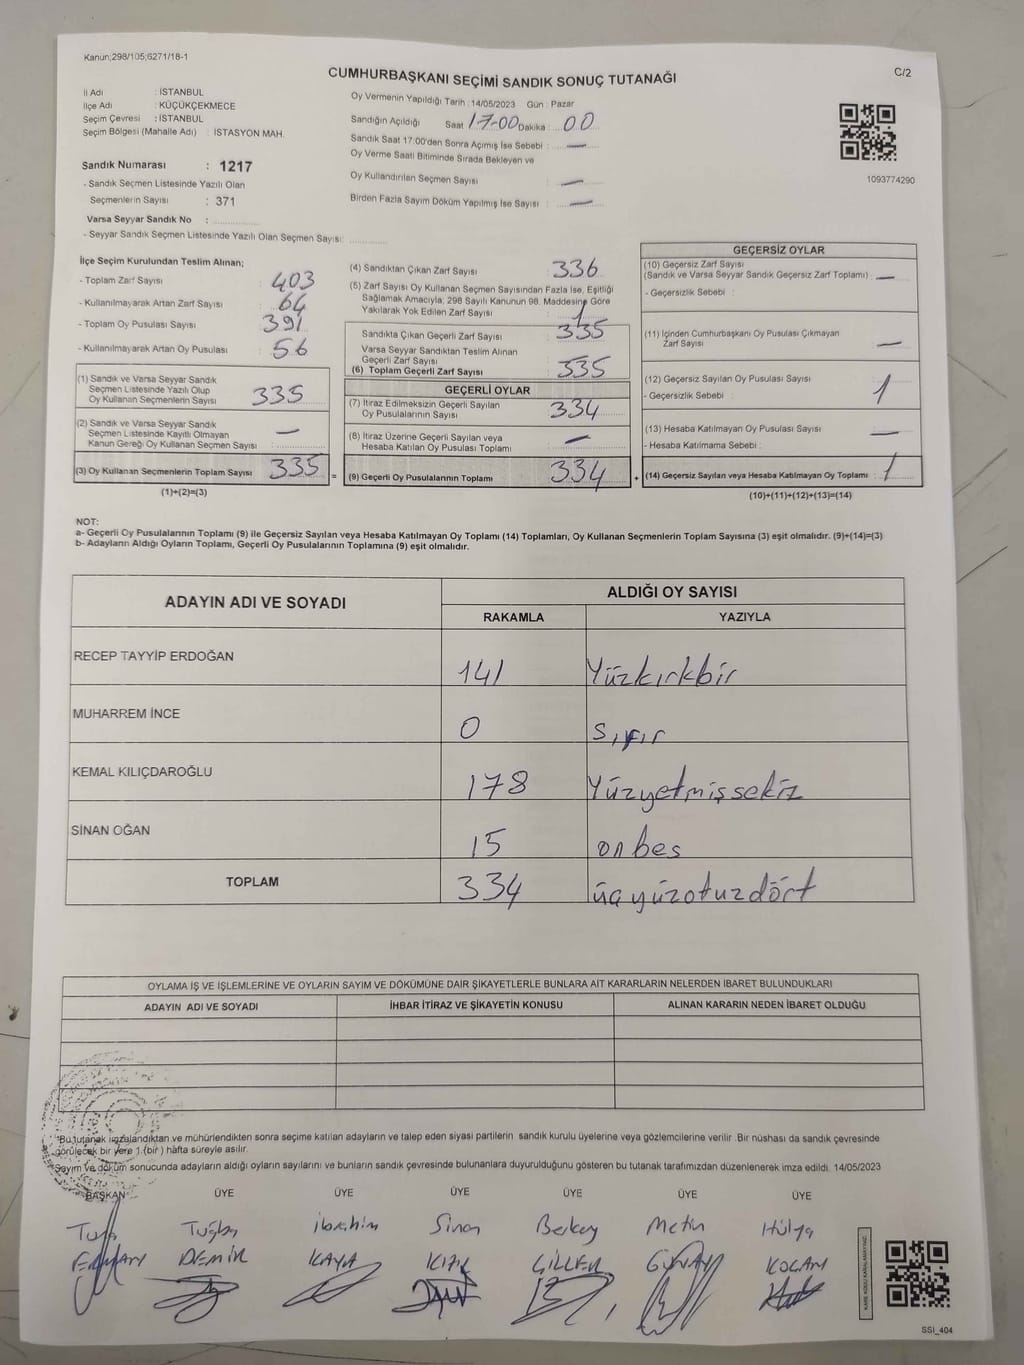 Kanun;298/105;6271/18-1
CUMHURBAŞKANI SEÇİMİ SANDIK SONUÇ TUTANAĞI
C/2
İl Adı : İSTANBUL
İlçe Adı : KÜÇÜKÇEKMECE
Seçim Çevresi : İSTANBUL
Seçim Bölgesi (Mahalle Adı) : İSTASYON MAH.
Sandık Numarası : 1217
- Sandık Seçmen Listesinde Yazılı Olan
Seçmenlerin Sayısı : 371
Varsa Seyyar Sandık No :
- Seyyar Sandık Seçmen Listesinde Yazılı Olan Seçmen Sayısı:
Oy Vermenin Yapıldığı Tarih : 14/05/2023 Gün : Pazar
Sandığın Açıldığı Saat 17:00 Dakika : 00
Sandık Saat 17:00'den Sonra Açımış İse Sebebi : —
Oy Verme Saati Bitiminde Sırada Bekleyen ve
Oy Kullandırılan Seçmen Sayısı : —
Birden Fazla Sayım Döküm Yapılmış İse Sayısı : —
1093774290
İlçe Seçim Kurulundan Teslim Alınan;
- Toplam Zarf Sayısı : 403
- Kullanılmayarak Artan Zarf Sayısı : 64
- Toplam Oy Pusulası Sayısı : 391
- Kullanılmayarak Artan Oy Pusulası : 56
(1) Sandık ve Varsa Seyyar Sandık
Seçmen Listesinde Yazılı Olup
Oy Kullanan Seçmenlerin Sayısı : 335
(2) Sandık ve Varsa Seyyar Sandık
Seçmen Listesinde Kayıtlı Olmayan
Kanun Gereği Oy Kullanan Seçmen Sayısı : —
(3) Oy Kullanan Seçmenlerin Toplam Sayısı : 335 =
(1)+(2)=(3)
(4) Sandıktan Çıkan Zarf Sayısı : 336
(5) Zarf Sayısı Oy Kullanan Seçmen Sayısından Fazla İse, Eşitliği
Sağlamak Amacıyla; 298 Sayılı Kanunun 98. Maddesine Göre
Yakılarak Yok Edilen Zarf Sayısı : 1
Sandıkta Çıkan Geçerli Zarf Sayısı : 335
Varsa Seyyar Sandıktan Teslim Alınan
Geçerli Zarf Sayısı :
(6) Toplam Geçerli Zarf Sayısı : 335
GEÇERLİ OYLAR
(7) İtiraz Edilmeksizin Geçerli Sayılan
Oy Pusulalarının Sayısı : 334
(8) İtiraz Üzerine Geçerli Sayılan veya
Hesaba Katılan Oy Pusulası Toplamı : —
(9) Geçerli Oy Pusulalarının Toplamı : 334 +
GEÇERSİZ OYLAR
(10) Geçersiz Zarf Sayısı
(Sandık ve Varsa Seyyar Sandık Geçersiz Zarf Toplamı) : —
- Geçersizlik Sebebi :
(11) İçinden Cumhurbaşkanı Oy Pusulası Çıkmayan
Zarf Sayısı : —
(12) Geçersiz Sayılan Oy Pusulası Sayısı : 1
- Geçersizlik Sebebi :
(13) Hesaba Katılmayan Oy Pusulası Sayısı : —
- Hesaba Katılmama Sebebi :
(14) Geçersiz Sayılan veya Hesaba Katılmayan Oy Toplamı : 1
(10)+(11)+(12)+(13)=(14)
NOT:
a- Geçerli Oy Pusulalarının Toplamı (9) ile Geçersiz Sayılan veya Hesaba Katılmayan Oy Toplamı (14) Toplamları, Oy Kullanan Seçmenlerin Toplam Sayısına (3) eşit olmalıdır. (9)+(14)=(3)
b- Adayların Aldığı Oyların Toplamı, Geçerli Oy Pusulalarının Toplamına (9) eşit olmalıdır.
ADAYIN ADI VE SOYADI ALDIĞI OY SAYISI
RAKAMLA YAZIYLA
RECEP TAYYİP ERDOĞAN 141 Yüzkırkbir
MUHARREM İNCE 0 sıfır
KEMAL KILIÇDAROĞLU 178 Yüzyetmişsekiz
SİNAN OĞAN 15 onbes
TOPLAM 334 üçyüzotuzdört
OYLAMA İŞ VE İŞLEMLERİNE VE OYLARIN SAYIM VE DÖKÜMÜNE DAİR ŞİKAYETLERLE BUNLARA AİT KARARLARIN NELERDEN İBARET BULUNDUKLARI
ADAYIN ADI VE SOYADI İHBAR İTİRAZ VE ŞİKAYETİN KONUSU ALINAN KARARIN NEDEN İBARET OLDUĞU
*Bu tutanak imzalandıktan ve mühürlendikten sonra seçime katılan adayların ve talep eden siyasi partilerin sandık kurulu üyelerine veya gözlemcilerine verilir .Bir nüshası da sandık çevresinde
görülecek bir yere 1 (bir ) hafta süreyle asılır.
*Sayım ve döküm sonucunda adayların aldığı oyların sayılarını ve bunların sandık çevresinde bulunanlara duyurulduğunu gösteren bu tutanak tarafımızdan düzenlenerek imza edildi. 14/05/2023
BAŞKAN ÜYE ÜYE ÜYE ÜYE ÜYE ÜYE
Tuğba İbrahim Sinan Berkay Metin Hülya
DEMİR KAYA GÜNAY KOCAN
KARE KODU KARALAMAYINIZ
SSI_404